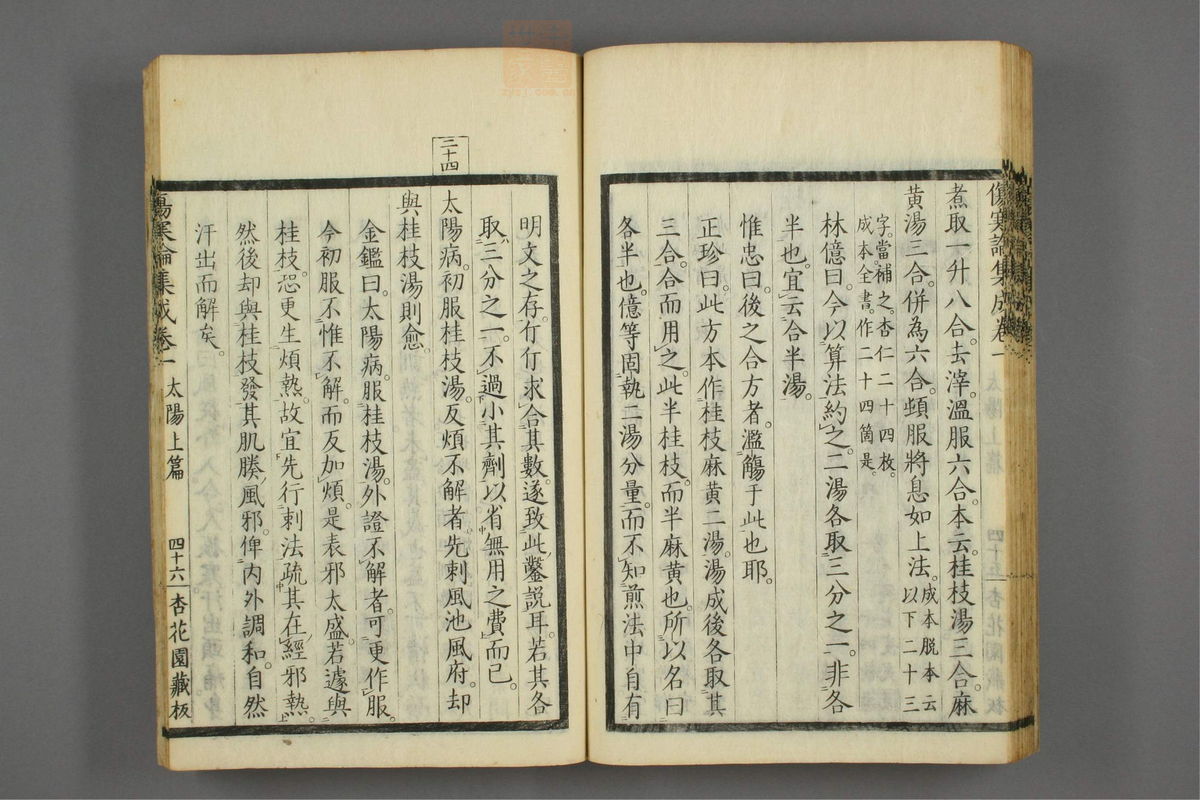 傷寒論集成卷一
煮取一升八合。去滓。溫服六合。本云。桂枝湯三合。麻
黄湯三合。併為六合。頓服。將息如上法。成本脱本云以下二十三
字。當補之。杏仁二十四枚。成本全書。作二十四箇。是。
林億曰。今以算法約之。二湯各取三分之一。非各
半也。宜云合半湯。
惟忠曰。後之合方者。濫觴于此也耶。
正珍曰。此方本作桂枝麻黄二湯。湯成後各取其
三合。合而用之。此半桂枝。而半麻黄也。所以名曰
各半也。億等固執二湯分量。而不知煎法中自有
明文之存。仃仃求合其數。遂致此鑿説耳。若其各
取三分之一。不過小其劑以省無用之費而已。
三十四
太陽病。初服桂枝湯。反煩不解者。先刺風池風府。却
與桂枝湯則愈。
金鑑曰。太陽病。服桂枝湯。外證不解者。可更作服。
今初服不惟不解。而反加煩。是表邪太盛。若遽與
桂枝。恐更生煩熱。故宜先行刺法。疏其在經邪熱。
然後却與桂枝。發其肌腠風邪。俾内外調和。自然
汗出而解矣。
傷寒論集成卷一 太陽上篇 四十六 杏花園藏板